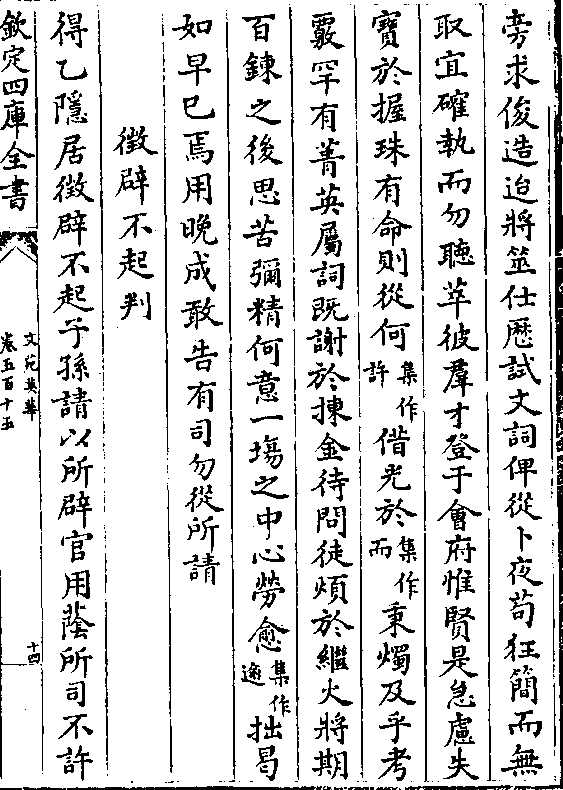 旁求俊造迨將筮仕歷試文詞俾從卜夜茍狂簡而無
取宜確執而勿聽萃彼羣才登于會府惟賢是急慮失
寶於握珠有命則從何集作許借光於集作而秉燭及乎考
覈罕有菁英屬詞既謝於揀金待問徒煩於繼火將期
百鍊之後思苦彌精何意一塲之中心勞愈集作逾拙曷
如早已焉用晚成敢告有司勿從所請
徵辟不起判
得乙隱居徵辟不起子孫請以所辟官用蔭所司不許
欽定四庫全書
文苑英華
卷五百十五
十四